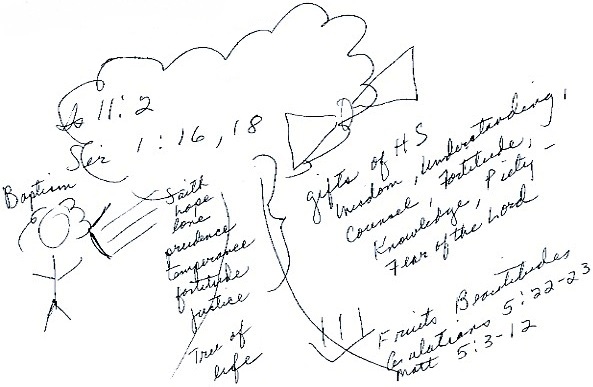 Is 11:2
Sir 1:16, 18
Baptism
Faith
hope
love
prudence
temperance
fortitude
justice
Tree of
life
gifts of HS
Wisdom, Understanding,
Counsel, Fortitude,
Knowledge, Piety -
Fear of the Lord
Fruits Beautitudes
Galatians 5:22-23
Matt 5:3-12